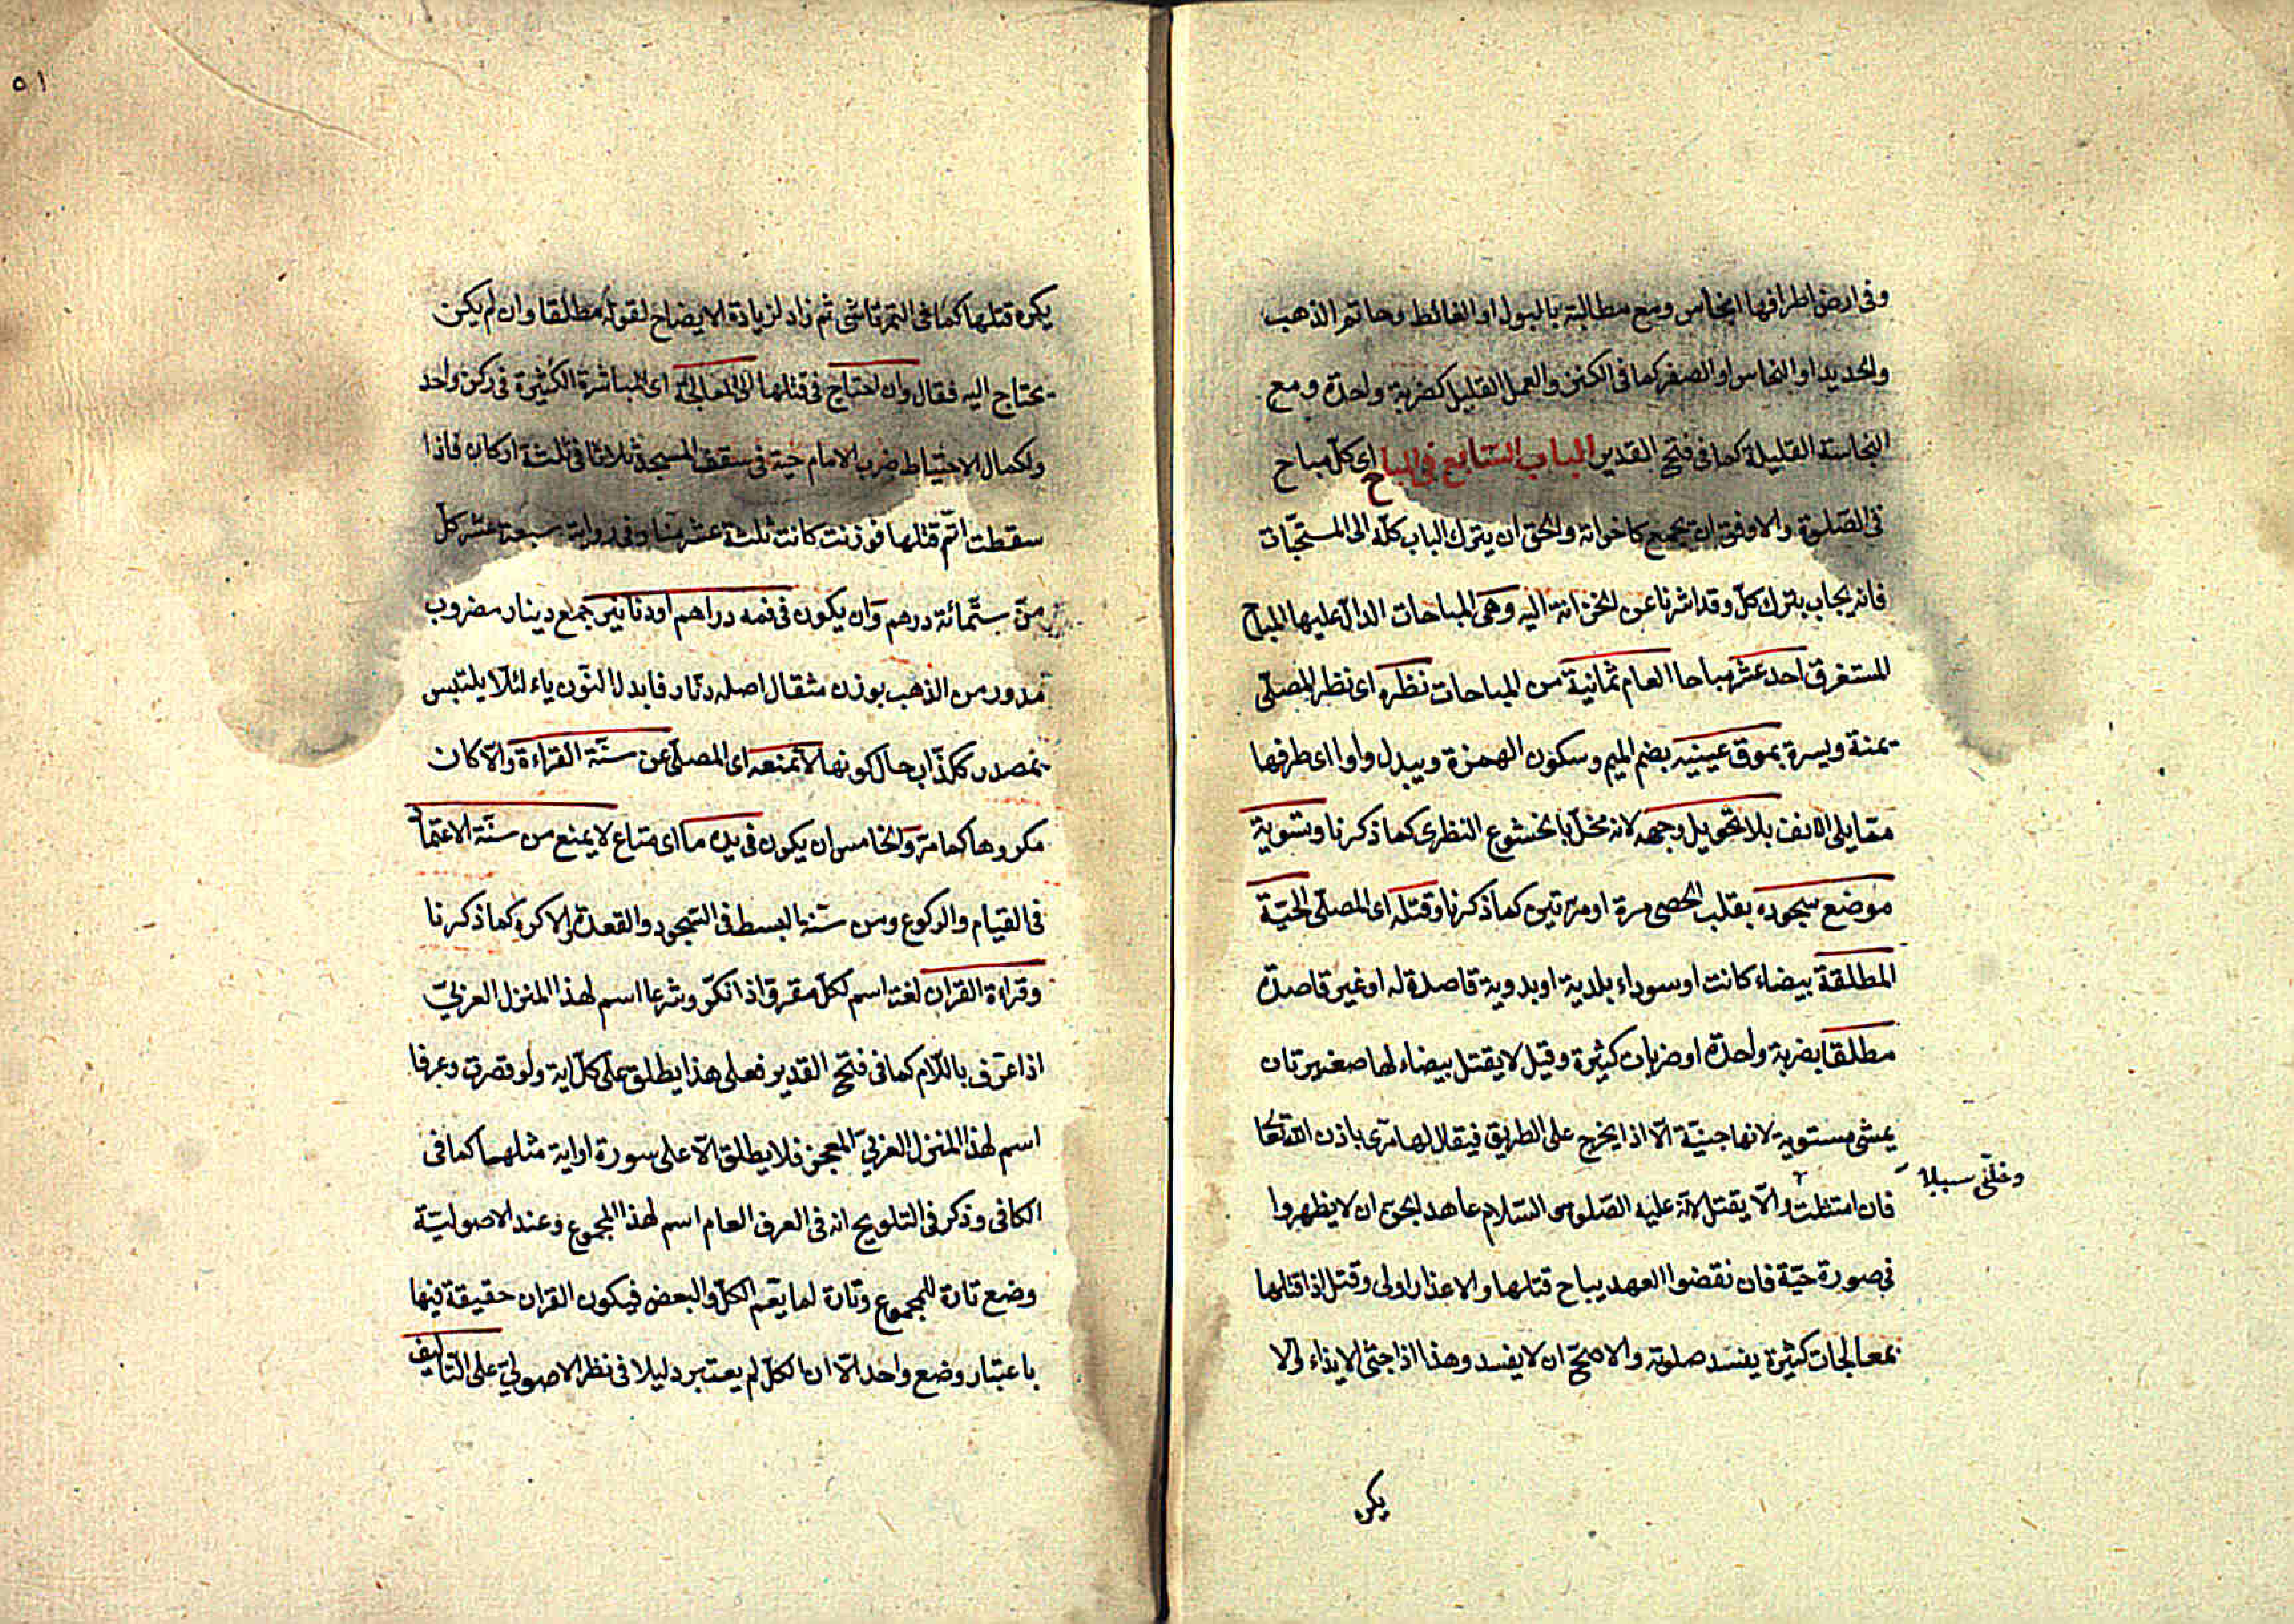 وفى ارض اطرافها انجاس ومع مطالبته بالبول او الغائط وخاتم الذهب
والحديد او النحاس او الصفر كما فى الكنز والعمل القليل كضربة واحدة ومع
النجاسة القليلة كما فى فتح القدير الباب السابع فى المباح اى كل مباح
فى الصلوة والاوفق ان يجمع كاخواته والحق ان يترك الباب كله الى المستحبات
فانه يجاب بترك كل وقد اشرنا عن الخزانة اليه وهى المباحات الدال عليها المباح
المستغرق احد عشر مباحا العام ثمانية من المباحات نظره اى نظر المصلى
يمنة ويسرة بموق عينيه بضم الميم وسكون الهمزة ويبدل واوا اى طرفها
مقابلى الانف بلا تحويل وجهه لانه مخل بالخشوع النظرى كما ذكرنا وتسوية
موضع سجوده بقلب الحصى مرة او مرتين كما ذكرنا وقتله اى المصلى الحية
المطلقة بيضاء كانت او سوداء بلدية او بدوية قاصدة له او غير قاصدة
مطلقا بضربة واحدة او ضربات كثيرة وقيل لا يقتل بيضاء لها صغيرتان
يمشى مستوية لانها جنية الا اذا يخرج على الطريق فيقال لها مرى باذن الله تعا
وخلى سبيلا
فان امتثلت والا يقتل لانه عليه الصلوة والسلام عاهد الجن ان لا يظهروا
فى صورة حية فان نقضوا العهد يباح قتلها والاعذار اولى وقتل اذا قتلها
بمعالجات كثيرة يفسد صلوته والاصح ان لا يفسد وهذا اذا خشى الايذاء والا
يكره
٥١
يكره قتلها كما فى التمرتاشى ثم زاد لزيادة الايضاح لقوله مطلقا وان لم يكن
يحتاج اليه فقال وان احتاج فى قتلها الى المعالجة اى المباشرة الكثيرة فى ركن واحد
ولكمال الاحتياط ضرب الامام حية فى سقف المسجد ثلاثا فى ثلثة اركان فاذا
سقطت اتم قتلها فوزنت كانت ثلثة عشر منا وفى رواية سبعة عشر كل
من ستمائة درهم وان يكون فى فمه دراهم او دنانير جمع دينار مضروب
مدور من الذهب بوزن مثقال اصله دنار فابدل النون ياء لئلا يلتبس
بمصدر ككذاب حال كونها لا تمنعه اى المصلى عن سنة القراءة والا كان
مكروها كما مر والخامس ان يكون فى يده ما اى متاع لا يمنع من سنة الاعتماد
فى القيام والركوع ومن سنة البسط فى السجود والقعدة والا كره كما ذكرنا
وقراءة القران لغة اسم لكل مقرو اذا نكر وشرعا اسم لهذا المنزل العربى
اذا عرف باللام كما فى فتح القدير فعلى هذا يطلق على كل اية ولو قصرت وعرفا
اسم لهذا المنزل العربى المعجز فلا يطلق الا على سورة او اية مثلهما كما فى
الكافى وذكر فى التلويح انه فى العرف العام اسم لهذا المجموع وعند الاصولية
وضع تارة للمجموع وتارة لما يعم الكل والبعض فيكون القران حقيقة فيها
باعتبار وضع واحد الا ان الكل لم يعتبر دليلا فى نظر الاصولى على التاليف